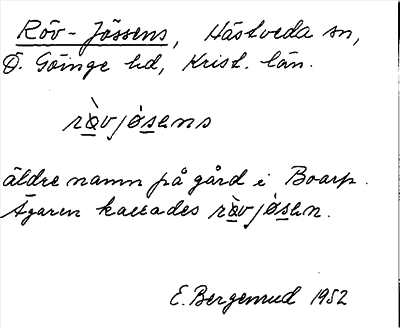 Röv-Jössens, Hästveda sn,
Ö. Göinge hd, Krist. län.
rò̱vjósens
äldre namn på gård i Boarp.
Ägaren kallades rò̱vjósen.
E. Bergenrud 1952